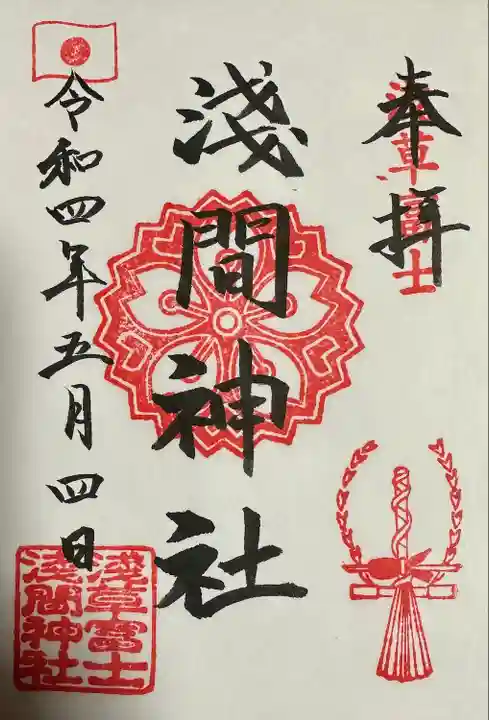 奉拝
浅草富士
淺間神社
令和四年五月四日
淺草富士
淺間神社